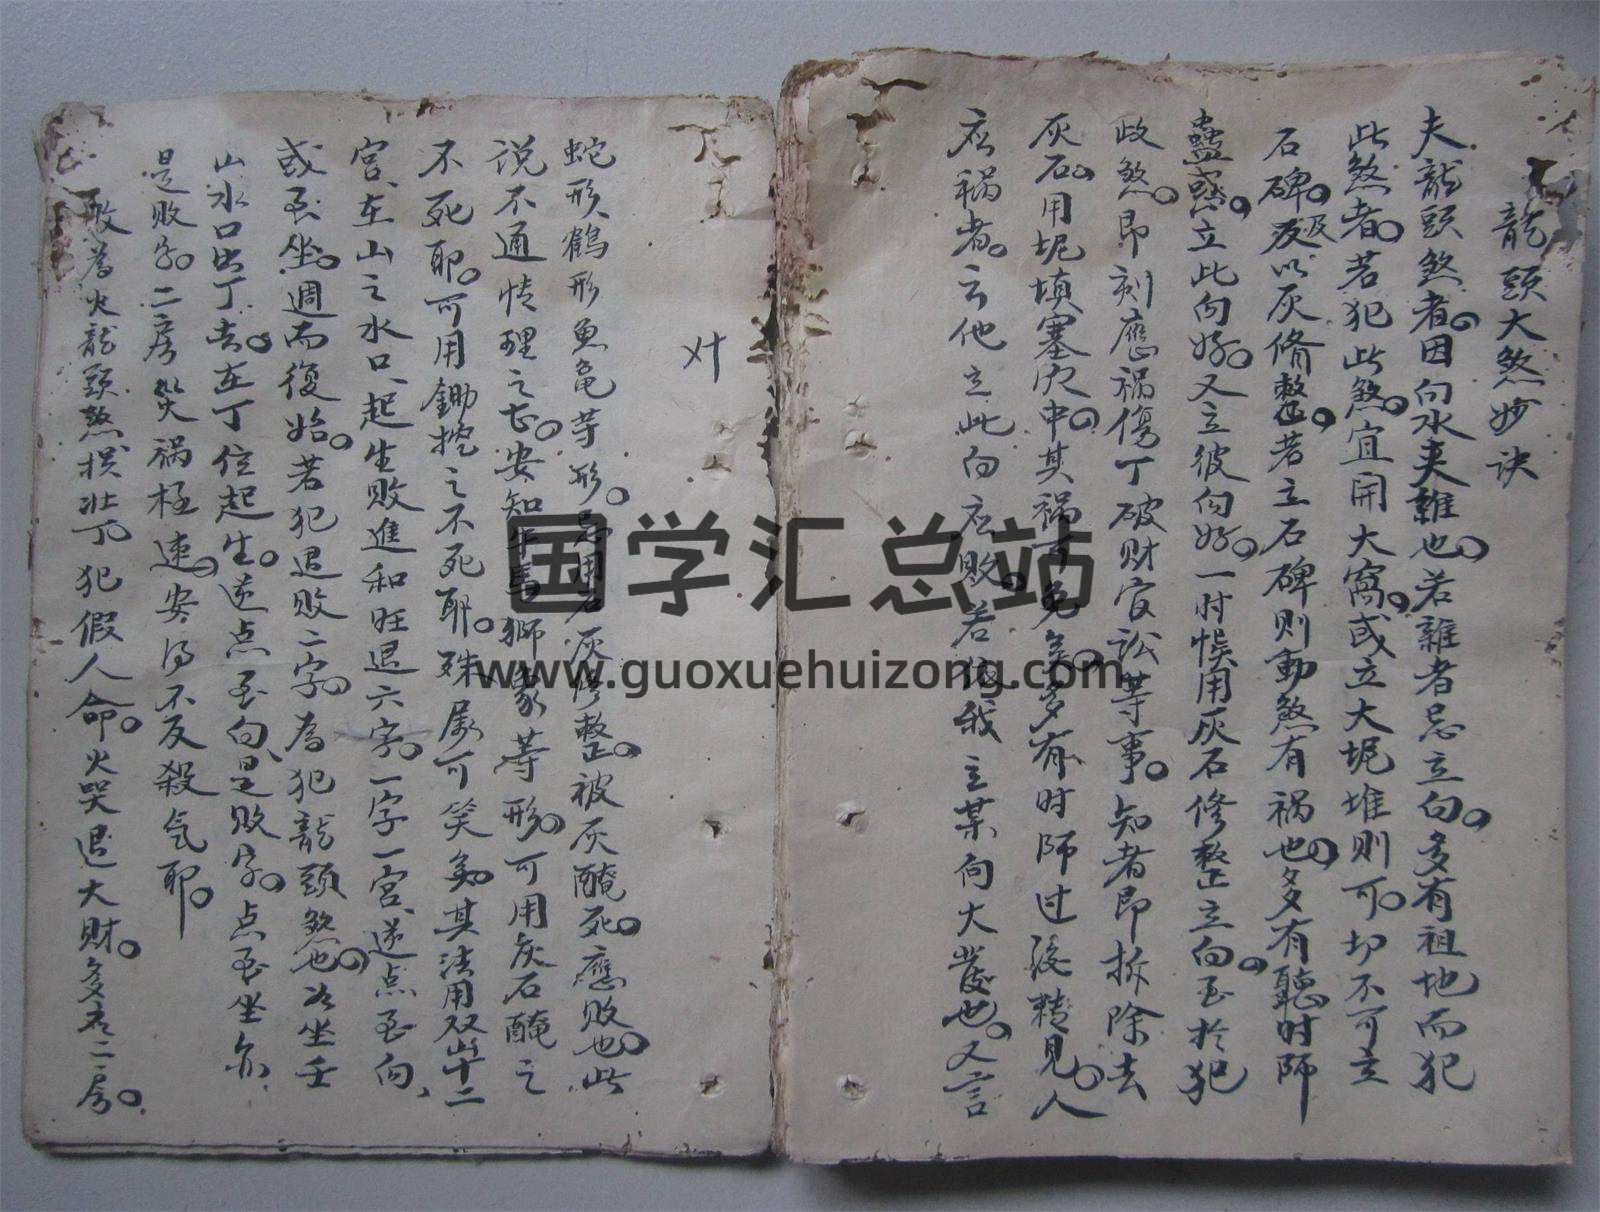 龍頭大煞妙诀
夫龍頭煞者因向水夹雜也若雜者忌立向多有祖地而犯
此煞者若犯此煞宜開大窩或立大坭堆則可切不可立
石碑及以灰脩整若立石碑則動煞有禍也多有聽时師
蠱惑立此向好又立彼向好一时悮用灰石修整立向至於犯
故煞即刻應禍傷丁破财官訟等事知者即拆除去
灰石用坭填塞穴中其禍可免矣多有时师过後轉見人
应禍者云他立此向应败若依我立某向大發也又言
蛇形鶴形魚龟等形忌用石灰修整被灰醃死應败也此
说不通情理之甚安知牛馬獅象等形可用灰石醃之
不死耶可用鋤挖之不死耶殊属可笑矣其法用双山十二
宫在山之水口起生败進和旺退六字一字一宫逆点至向
或至坐週而復始若犯退败二字為犯龍頭煞也如坐壬
山水口出丁去在丁位起生逆点至向是败字点至坐亦
是败字二房災禍極速安得不反殺气耶
败為火龍頭煞損壯丁犯假人命火哭退大财多在二房
国学汇总站
www.guoxuehuizong.com